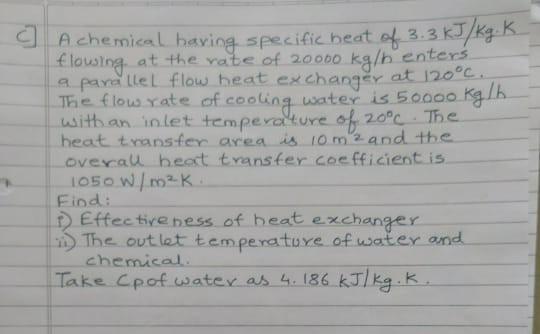 C] A chemical having specific heat of 3.3 kJ/kg.K
flowing at the rate of 20000 kg/h enters
a parallel flow heat exchanger at 120°C.
The flow rate of cooling water is 50000 kg/h
with an inlet temperature of 20°C. The
heat transfer area is 10 m² and the
overall heat transfer coefficient is
1050 W/m²K.
Find:
i) Effectiveness of heat exchanger
ii) The outlet temperature of water and
chemical.
Take Cp of water as 4.186 kJ/kg.K.